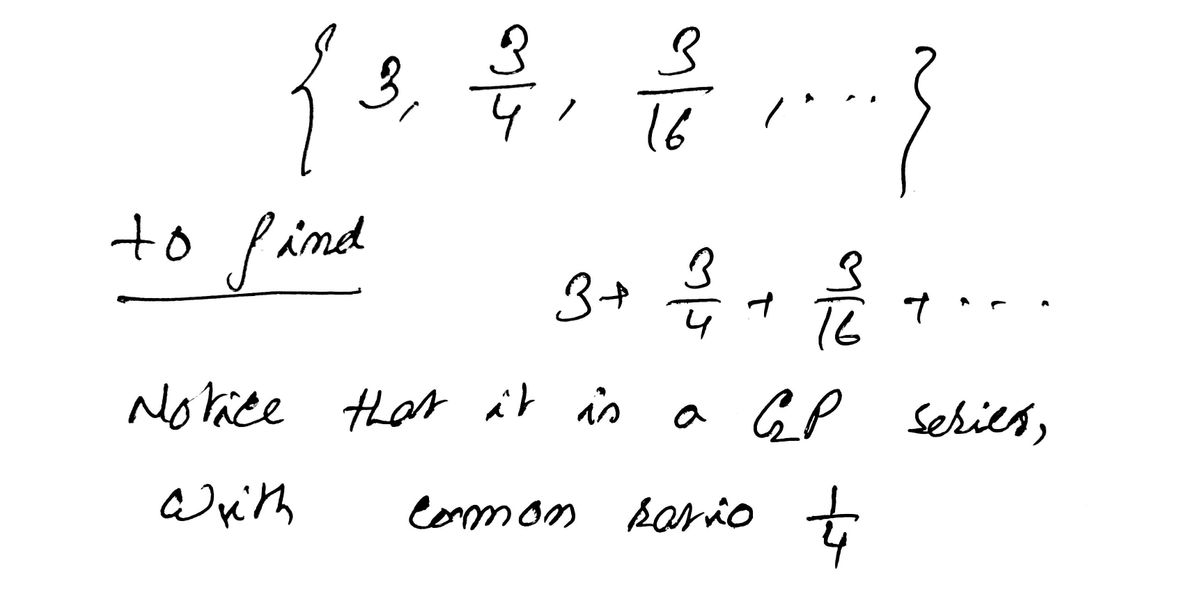 { 3, 3/4, 3/16, .... }
to find
3 + 3/4 + 3/16 + ....
Notice that it is a GP series,
with common ratio 1/4